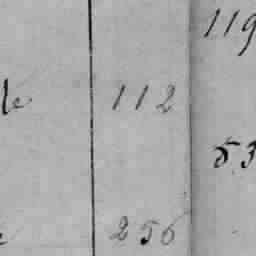 119
le 112
53
256